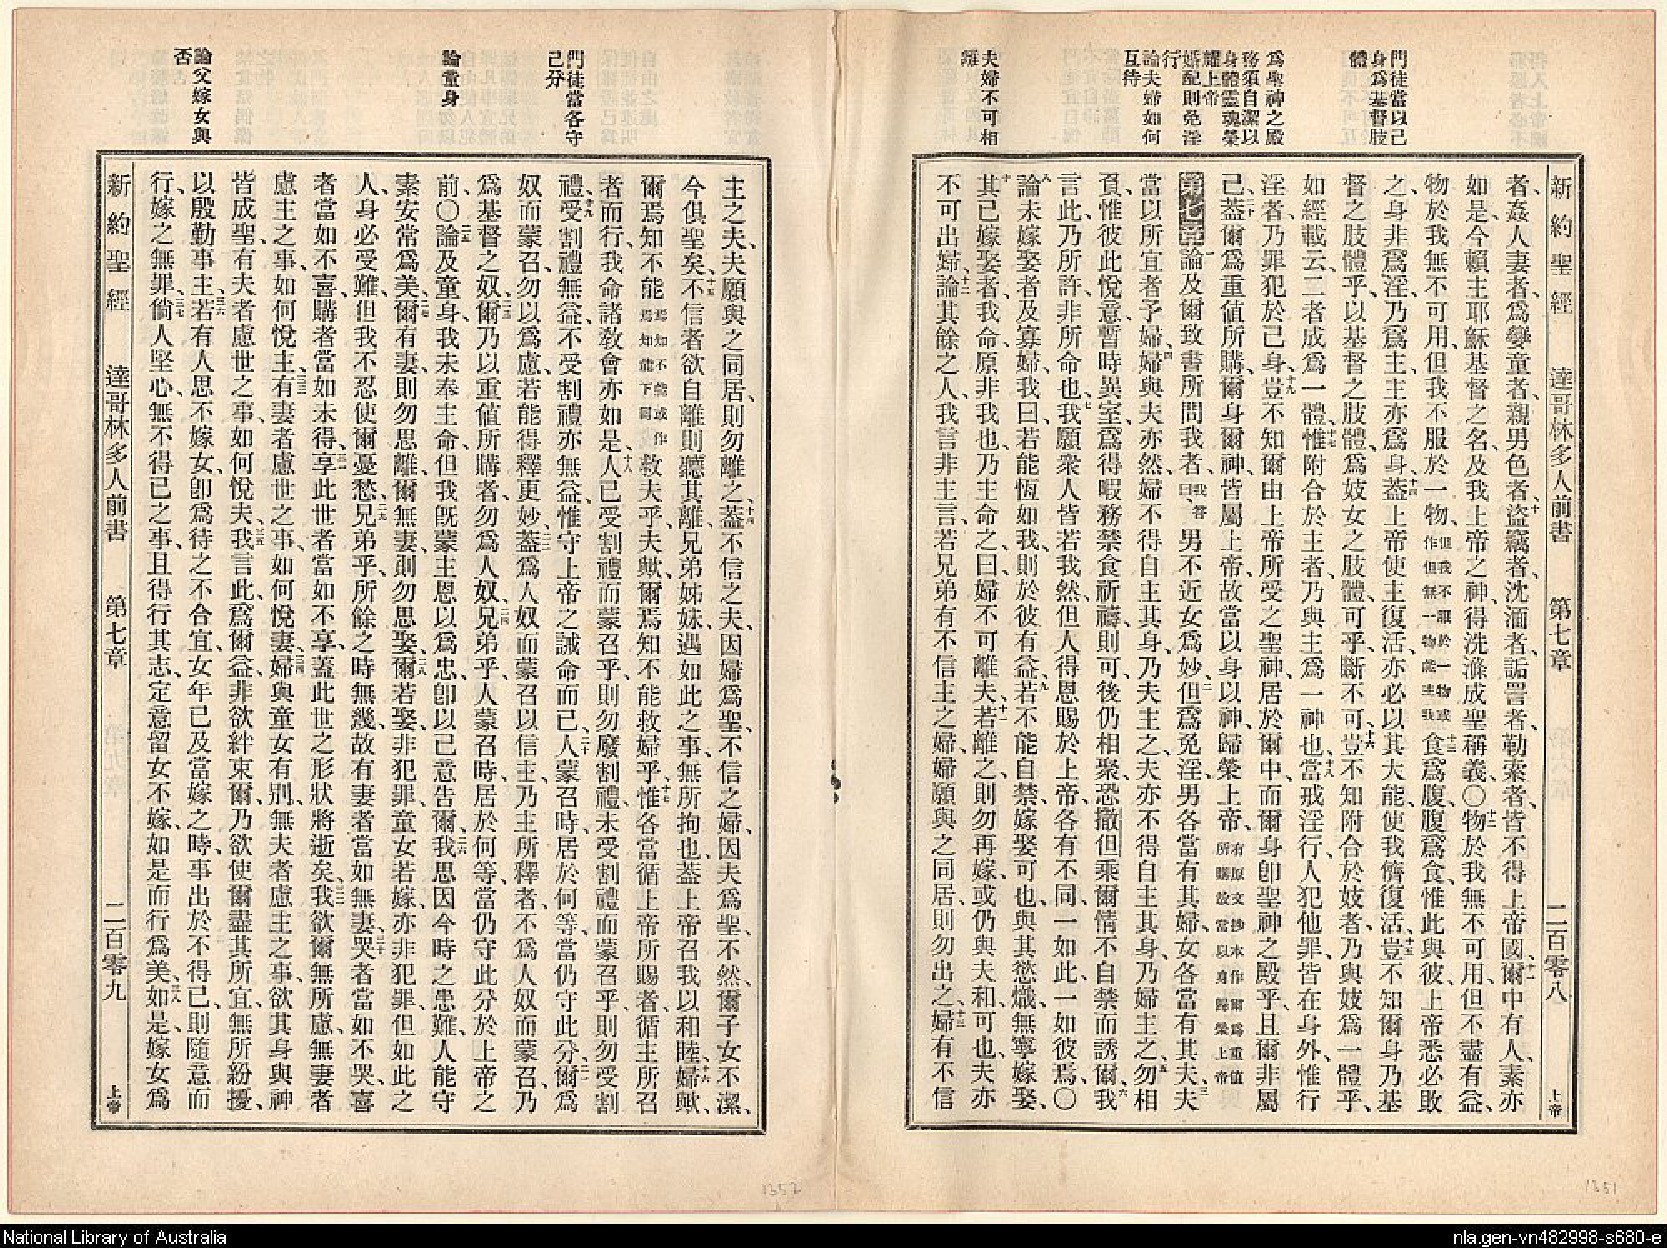 新約聖經 達哥林多人前書 第七章 二百零八 上帝
門徒當以己
身爲基督肢
體
爲聖神之殿
務須自潔以
身體靈魂榮
耀上帝
婚配則免淫
行
論夫婦如何
互待
夫婦不可相
離
者、姦人妻者、爲孌童者、親男色者、十盜竊者、沈湎者、詬詈者、勒索者、皆不得上帝國、十一爾中有人、素亦
如是、今賴主耶穌基督之名、及我上帝之神、得洗滌成聖稱義、〇十二物於我無不可用、但不盡有益、
物於我無不可用、但我不服於一物、但我不服於一物或作但無一物能主我十三食爲腹、腹爲食、惟此與彼、上帝悉必敗
之、身非爲淫、乃爲主、主亦爲身、十四蓋上帝使主復活、亦必以其大能、使我儕復活、十五豈不知爾身乃基
督之肢體乎、以基督之肢體、爲妓女之肢體、可乎、斷不可、十六豈不知附合於妓者、乃與妓爲一體乎、
如經載云、二者成爲一體、十七惟附合於主者、乃與主爲一神也、十八當戒淫行、人犯他罪、皆在身外、惟行
淫者、乃罪犯於己身、十九豈不知爾由上帝所受之聖神、居於爾中、而爾身卽聖神之殿乎、且爾非屬
己、二十蓋爾爲重値所購、爾身爾神、皆屬上帝、故當以身以神歸榮上帝、有原文抄本作爾爲重值所購故當以身歸榮上帝
第七章 一論及爾致書所問我者、我答曰、男不近女爲妙、二但爲免淫、男各當有其婦、女各當有其夫、三夫
當以所宜者予婦、婦與夫亦然、四婦不得自主其身、乃夫主之、夫亦不得自主其身、乃婦主之、五勿相
負、惟彼此悅意、暫時異室、爲得暇務禁食祈禱則可、後仍相聚、恐撒但乘爾情不自禁而誘爾、六我
言此、乃所許、非所命也、七我願衆人皆若我然、但人得恩賜於上帝、各有不同、一如此、一如彼焉、〇
八論未嫁娶者及寡婦、我曰、若能恆如我、則於彼有益、九若不能自禁、嫁娶可也、與其慾熾、無寧嫁娶、
十其已嫁娶者、我命、原非我也、乃主命之曰、婦不可離夫、十一若離之、則勿再嫁、或仍與夫和可也、夫亦
不可出婦、十二論其餘之人、我言非主言、若兄弟有不信主之婦、婦願與之同居、則勿出之、十三婦有不信
門徒當各守
己分
論童身
論父嫁女與
否
主之夫、夫願與之同居、則勿離之、十四蓋不信之夫、因婦爲聖、不信之婦、因夫爲聖、不然、爾子女不潔、
今俱聖矣、十五不信者欲自離、則聽其離、兄弟姊妹、遇如此之事、無所拘也、蓋上帝召我以和睦、十六婦歟、
爾焉知不能焉知不能或作焉知能下同救夫乎、夫歟、爾焉知不能救婦乎、十七惟各當循上帝所賜者、循主所召
者而行、我命諸敎會亦如是、十八人已受割禮而蒙召乎、則勿廢割禮、未受割禮而蒙召乎、則勿受割
禮、十九受割禮無益、不受割禮亦無益、惟守上帝之誡命而已、二十人蒙召時、居於何等、當仍守此分、二一爾爲
奴而蒙召、勿以爲慮、若能得釋更妙、二二蓋爲人奴而蒙召以信主、乃主所釋者、不爲人奴而蒙召、乃
爲基督之奴、二三爾乃以重値所購者、勿爲人奴、二四兄弟乎、人蒙召時、居於何等、當仍守此分於上帝之
前、〇二五論及童身、我未奉主命、但我旣蒙主恩以爲忠、卽以己意告爾、二六我思因今時之患難、人能守
素安常爲美、二七爾有妻、則勿思離、爾無妻、則勿思娶、二八爾若娶、非犯罪、童女若嫁、亦非犯罪、但如此之
人、身必受難、但我不忍使爾憂愁、二九兄弟乎、所餘之時無幾、故有妻者、當如無妻、三十哭者當如不哭、喜
者當如不喜、購者當如未得、三一享此世者當如不享、蓋此世之形狀將逝矣、三二我欲爾無所慮、無妻者
慮主之事、如何悅主、三三有妻者慮世之事、如何悅妻、三四婦與童女有別、無夫者慮主之事、欲其身與神
皆成聖、有夫者慮世之事、如何悅夫、三五我言此、爲爾益、非欲絆束爾、乃欲使爾盡其所宜、無所紛擾、
以殷勤事主、三六若有人思不嫁女、卽爲待之不合宜、女年已及當嫁之時、事出於不得已、則隨意而
行、嫁之無罪、三七倘人堅心、無不得已之事、且得行其志、定意留女不嫁、如是而行爲美、三八如是、嫁女爲
新約聖經 達哥林多人前書 第七章 二百零九 上帝
1352
1351
National Library of Australia
nla.gen-vn482998-s680-e